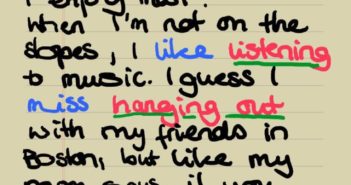 I enjoy most?
When I'm not on the
slopes, I like listening
to music. I guess I
miss hanging out
with my friends in
Boston, but like my